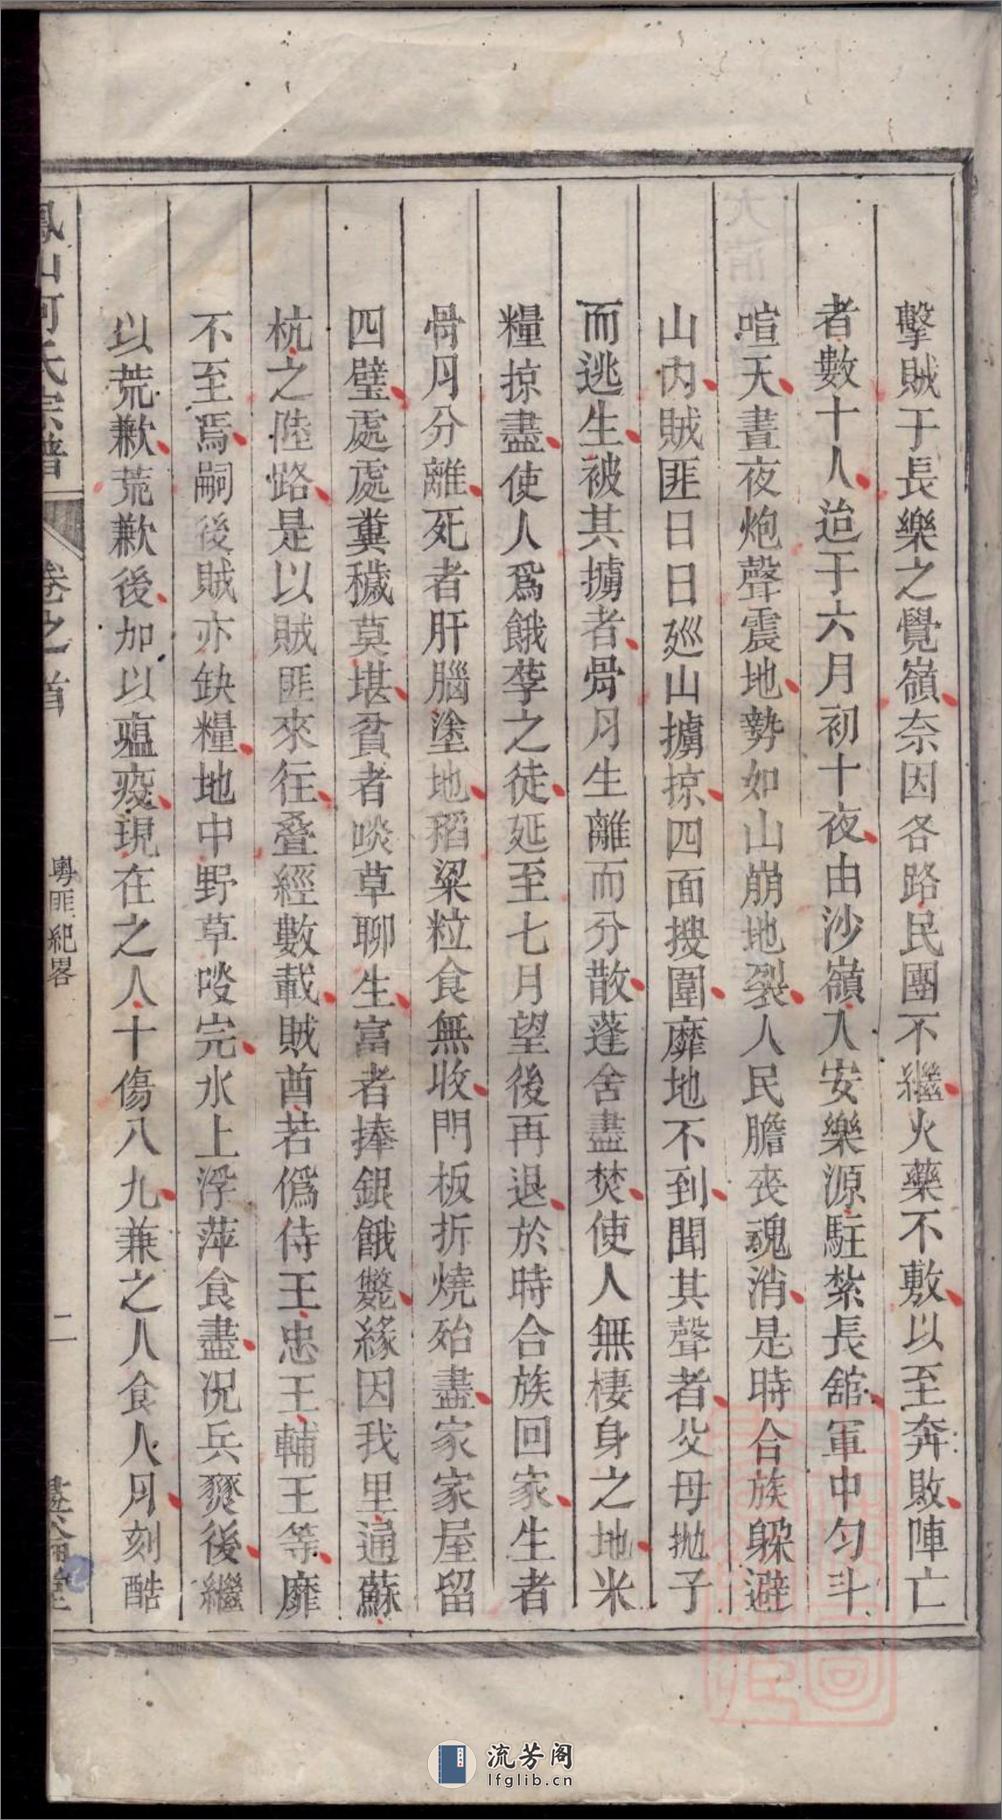 擊賊于長樂之覺嶺奈因各路民團不繼火藥不敷以至奔敗陣亡
者數十人迨于六月初十夜由沙嶺入安樂源駐紮長舘軍中勻斗
喧天晝夜炮聲震地勢如山崩地裂人民膽喪魂消是時合族躲避
山內賊匪日日廵山擄掠四面搜圍靡地不到聞其聲者父母拋子
而逃生被其擄者骨月生離而分散蓬舍盡焚使人無棲身之地米
糧掠盡使人爲餓莩之徒延至七月望後再退於時合族回家生者
骨月分離死者肝腦塗地稻粱粒食無收門板折燒殆盡家家屋留
四壁處處糞穢莫堪貧者啖草聊生富者捧銀餓斃緣因我里通蘇
杭之陸路是以賊匪來往叠經數載賊酋若僞侍王忠王輔王等靡
不至焉嗣後賊亦缺糧地中野草啖完水上浮萍食盡況兵燹後繼
以荒歉荒歉後加以瘟疫現在之人十傷八九兼之人食人月刻酷
鳳山何氏宗譜 卷之首 粵匪紀畧 二
流芳阁
lfglib.cn